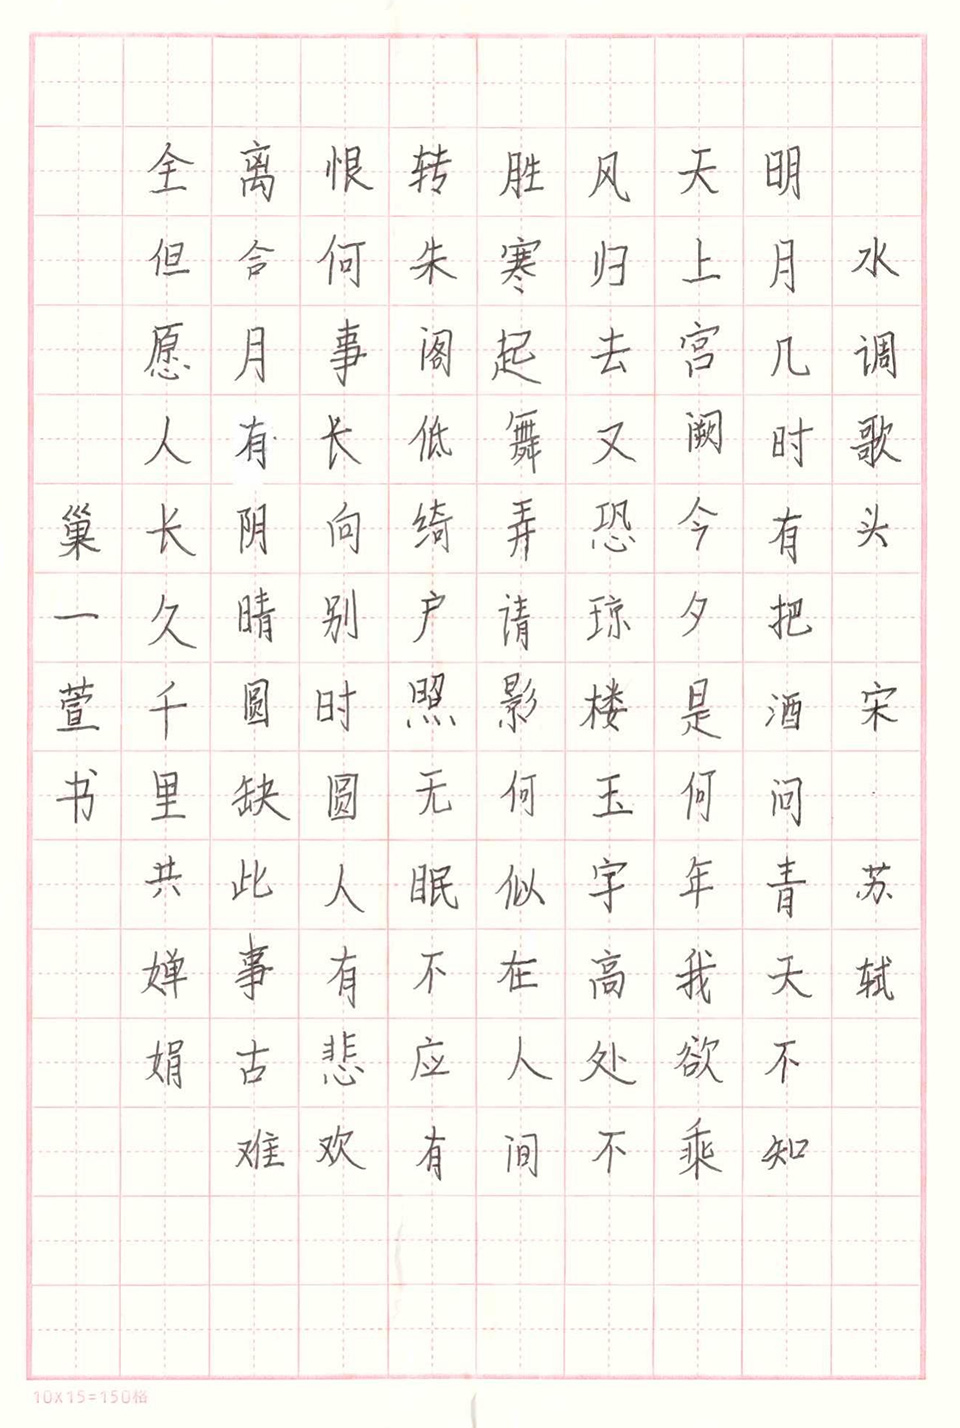 水调歌头 宋 苏轼
明月几时有把酒问青天不知
天上宫阙今夕是何年我欲乘
风归去又恐琼楼玉宇高处不
胜寒起舞弄请影何似在人间
转朱阁低绮户照无眠不应有
恨何事长向别时圆人有悲欢
离合月有阴晴圆缺此事古难
全但愿人长久千里共婵娟
巢一萱书
10X15=150格